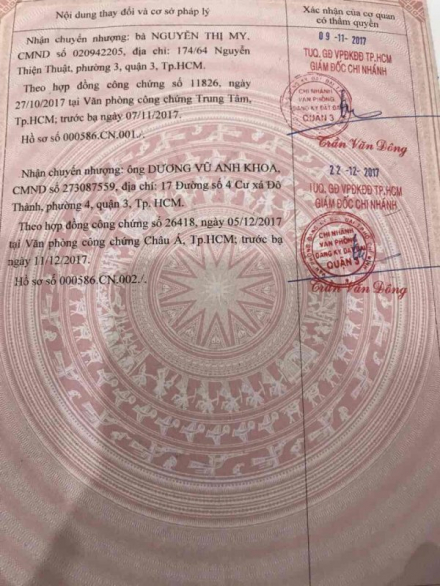 Nội dung thay đổi và cơ sở pháp lý
Xác nhận của cơ quan
có thẩm quyền
Nhận chuyển nhượng: bà NGUYỄN THỊ MY,
CMND số 020942205, địa chỉ: 174/64 Nguyễn
Thiện Thuật, phường 3, quận 3, Tp.HCM.
Theo hợp đồng công chứng số 11826, ngày
27/10/2017 tại Văn phòng công chứng Trung Tâm,
Tp.HCM; trước bạ ngày 07/11/2017.
Hồ sơ số 000586.CN.001./.
09 -11- 2017
TUQ. GĐ VPĐKĐĐ TP.HCM
GIÁM ĐỐC CHI NHÁNH
CHI NHÁNH
VĂN PHÒNG
ĐĂNG KÝ ĐẤT ĐAI
QUẬN 3
Trần Văn Đông
Nhận chuyển nhượng: ông DƯƠNG VŨ ANH KHOA,
CMND số 273087559, địa chỉ: 17 Đường số 4 Cư xá Đô
Thành, phường 4, quận 3, Tp. HCM.
Theo hợp đồng công chứng số 26418, ngày 05/12/2017
tại Văn phòng công chứng Châu Á, Tp.HCM; trước bạ
ngày 11/12/2017.
Hồ sơ số 000586.CN.002./.
22 -12- 2017
TUQ. GĐ VPĐKĐĐ TP.HCM
GIÁM ĐỐC CHI NHÁNH
CHI NHÁNH
VĂN PHÒNG
ĐĂNG KÝ ĐẤT ĐAI
QUẬN 3
Trần Văn Đông